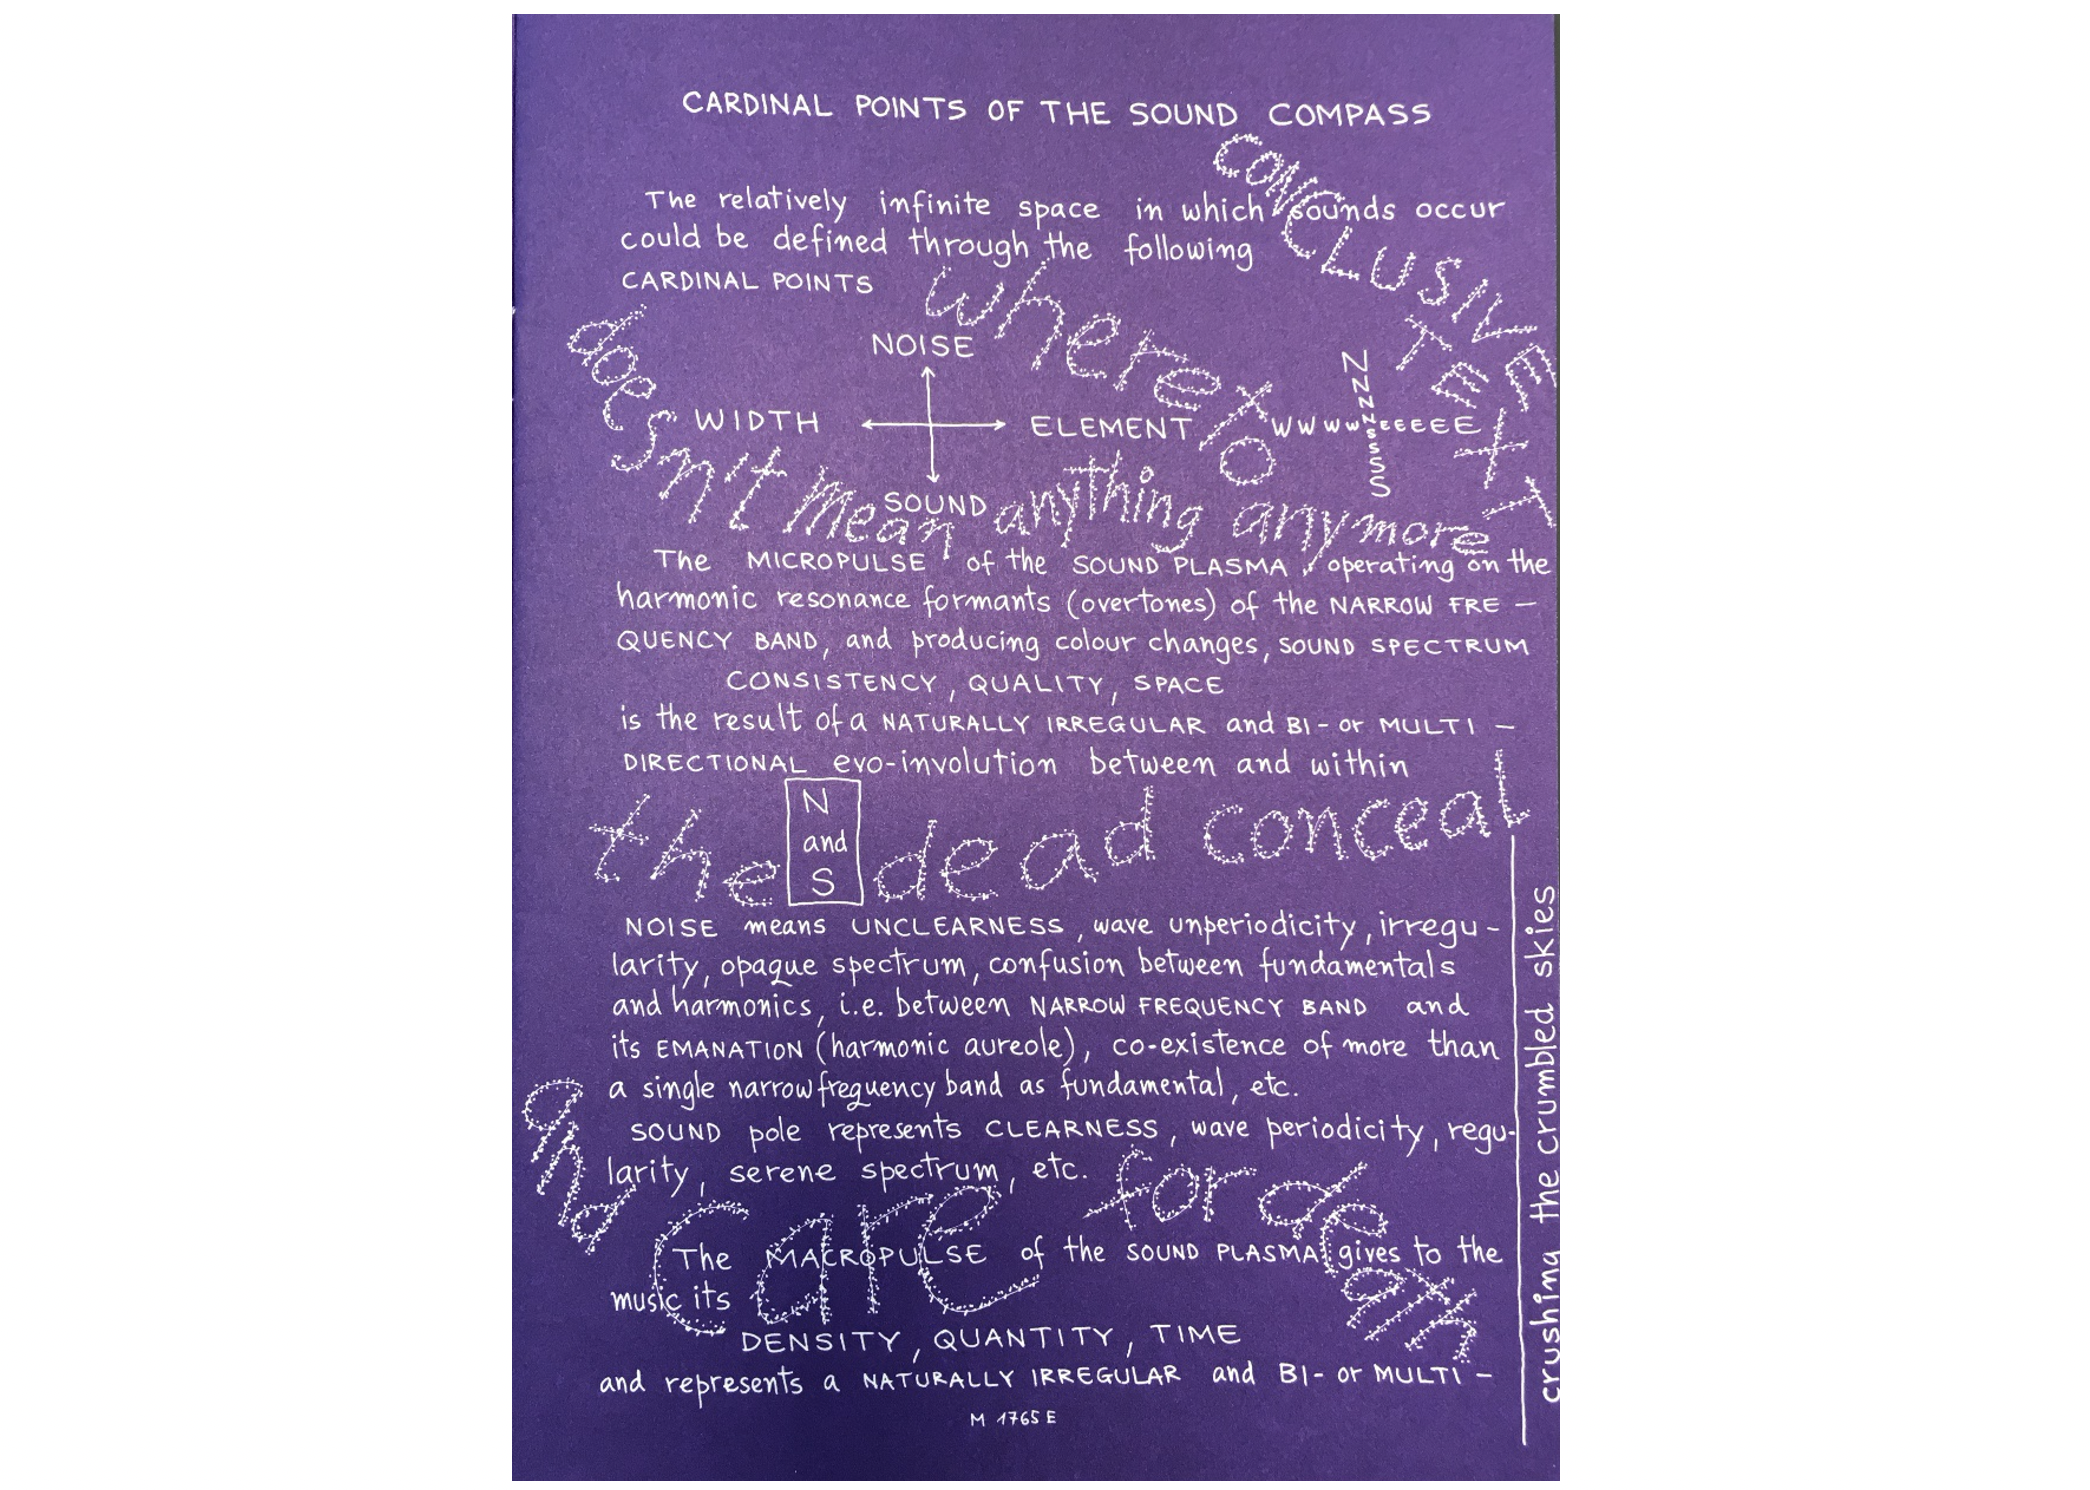 CARDINAL POINTS OF THE SOUND COMPASS
CONCLUSIVE
TEXT
The relatively infinite space in which sounds occur
could be defined through the following
CARDINAL POINTS
where to
NOISE
WIDTH ELEMENT
SOUND
N
N
N
N
N
W W W W E E E E E
S
S
S
S
S
doesn't mean anything anymore
The MICROPULSE of the SOUND PLASMA, operating on the
harmonic resonance formants (overtones) of the NARROW FRE -
QUENCY BAND, and producing colour changes, SOUND SPECTRUM
CONSISTENCY, QUALITY, SPACE
is the result of a NATURALLY IRREGULAR and BI- or MULTI -
DIRECTIONAL evo-involution between and within
N
and
S
the dead conceal
NOISE means UNCLEARNESS, wave unperiodicity, irregu-
larity, opaque spectrum, confusion between fundamentals
and harmonics, i.e. between NARROW FREQUENCY BAND and
its EMANATION (harmonic aureole), co-existence of more than
a single narrow frequency band as fundamental, etc.
SOUND pole represents CLEARNESS, wave periodicity, regu-
larity, serene spectrum, etc.
and care for death
The MACROPULSE of the SOUND PLASMA gives to the
music its
DENSITY, QUANTITY, TIME
and represents a NATURALLY IRREGULAR and BI- or MULTI -
M 1765 E
crushing the crumbled skies